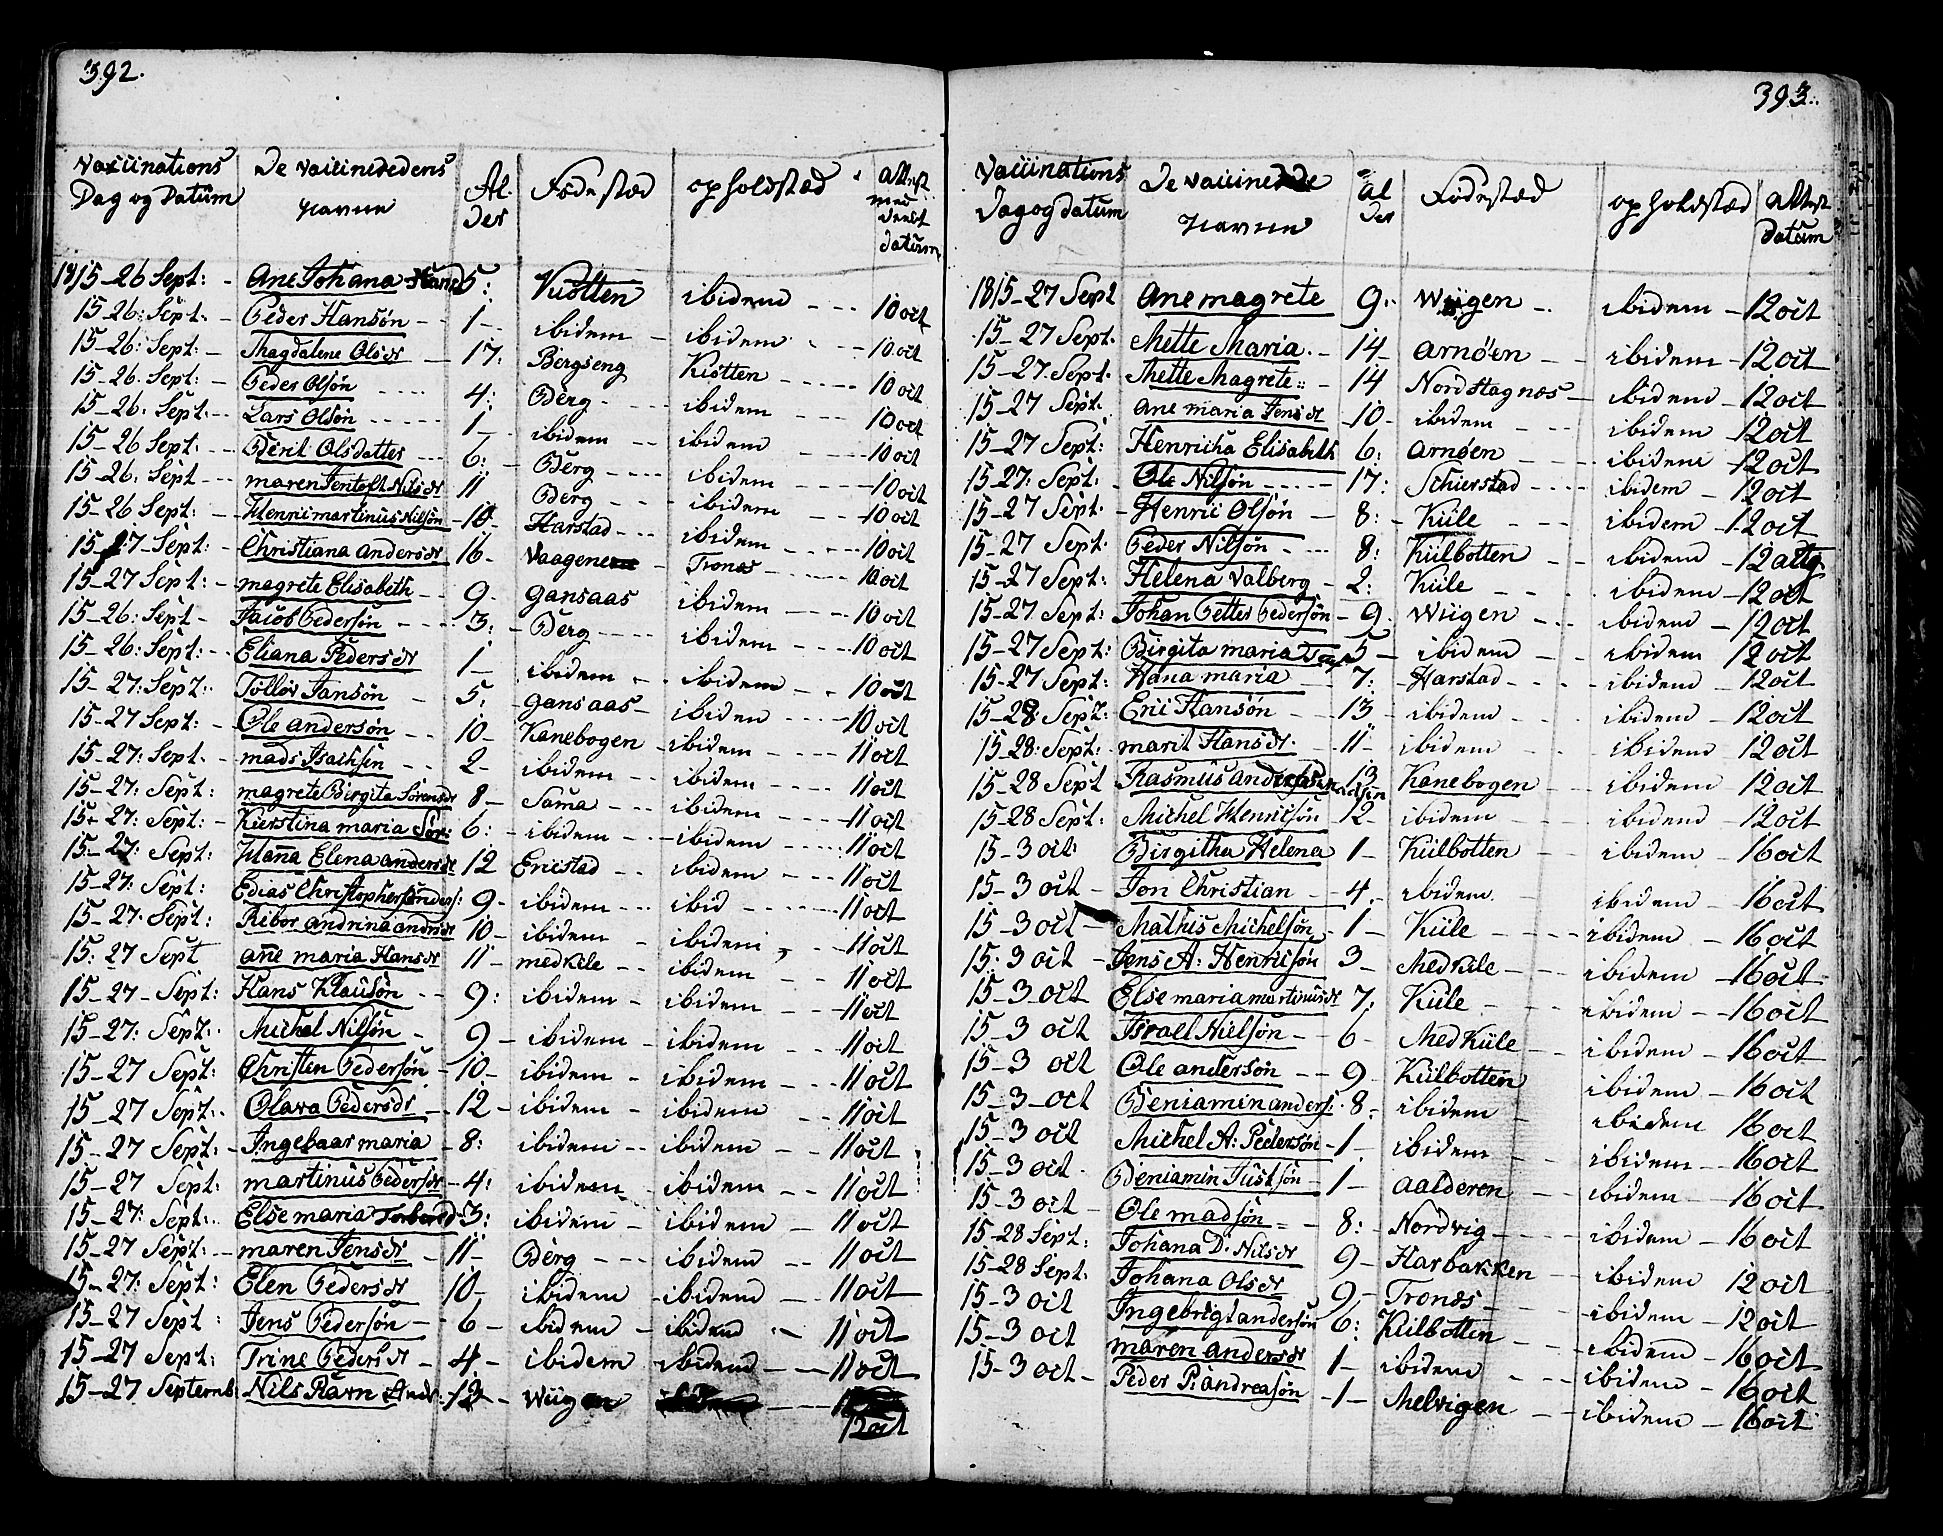 392.
Vaccinations Dag og Datum | De Vaccineredens Navne | Al-der | Fødestæd | opholdstæd | Attest med deres datum
1815-26 Sept: - Ane Johana Hansd 5: Kiøtten ibidem - - - 10 oct
15-26: Sept. - Peder Hansøn - - 1 - ibidem ibidem - - 10 oct
15-26: Sept. - Magdalene Olsdr - 17: Bergseng Kiøtten - - - 10 oct
15-26. Sept: - Peder Olsøn - - - 4: Berg - - - ibidem - - - 10 oct
15-26: Sept: - - Lars Olsøn - - - 1 - ibidem - - ibidem - - - 10 oct
15-26 Sept: - - Berit Olsdatter - - 6: - Berg - - - ibidem - - - 10 oct
15-26. Sept - - maren Jentoft Nilsdr 11 Berg - - - ibidem - - - 10 oct
15-26 Sept: - Henric martinus Nilsøn - 10 - Harstad - - - ibidem - - - 10 oct
15-27 - Sept: - Christiana andersdr 16 - Vaagene - Tronæs - - - 10 oct
15-27 Sept: - magrete Elisabeth - - 9 - gansaas ibidem - - - 10 oct
15-26: Sept - Jacob Pedersøn - - - 3: - Berg - - - ibidem - - - 10 oct
15-26: Sept: - - Eliana Pedersdr 1 - ibidem - - ibidem - - 10 oct
15-27: Sept: - Tolløv Jansøn - 5: - gansaas - ibidem - - - 10 oct
15-27 Sept: - Ole andersøn - - 10 - Kanebogen - ibidem - - - 11 oct
15-27: Sept. - mads Isachsen - - 2 - ibidem - - ibidem - - - 11 oct
15-27: Sept: magrete Birgita Sørensdr 8 - Sama - - - ibidem - - - 11 oct
15-27: Sept: - Kierstina maria Sør: 6: - ibidem - - - ibidem - - - 11 oct
15-27: Sept: Hanna Elena andersdr 12 Ericstad - - ibidem - - - 11 oct
15-27: Sept: Edias Christophersøn 9 - ibidem - - ibid - - - 11 oct
15-27: Sept: Ribor andrina andrsdr 10 - ibidem - ibidem - - 11 oct
15: 27 Sept ane maria Hansdr 11 - medkile - - ibidem - - 11 oct
15-27 - Sept: Hans Klausøn - - 9: - ibidem - ibidem - - - 11 oct
15-27: Sept: - Michel Nilsøn - 9 - ibidem - ibidem - - - 11 oct
15-27 Sept: Christen Pedersøn - 10 - ibidem - - ibidem - - - 11 oct
15-27 Sept: - Olava Pedersdr - 12 - ibidem - ibidem - - - 11 oct
15-27 Sept: - Ingebaar maria - 8: ibidem - ibidem - - 11 oct
15-27 Sept: martinus Pedersdr - 4: ibidem - - ibidem - - 11 oct
15-27: Sept: - Else maria 3: ibidem - - ibidem - - 11 oct
15-27 Sept: - maren Jensdr - 11 - Berg - - - ibidem - - 11 oct
15-27: Sept: Elen Pedersdr 10 - ibidem - ibidem - 11 oct
15-27 Sept: Jens Pedersøn - - 6 - ibidem - ibidem - - 11 oct
15-27 Sept: Trine Pedersdr - 4 - ibidem ibidem - - 11 oct
15-27 Septemb: Nils Ravn Andr - 12 - Wiigen - - - 12 oct
393.
Vaccinations Dag og datum | De vaccinerede Navne | al der | Fødestæd | opholdstæd | Attest datum
1815-27 Sept Ane magrete 9: Wiigen - - ibidem - 12 oct
15-27 Sept. Mette Maria. - 14 - Arnøen - - ibidem - 12 oct
15-27. Sept. Mette Magrete: - 14 Nordstagnæs - ibidem - 12 oct
15-27 Sept. Ane maria Jensdr - 10 - ibidem - - - ibidem - 12 oct
15-27 Sept: Henricha Elisabeth 6: Arnøen - - - ibidem - 12 oct
15-27: Sept: - Ole Nilsøn - - - 17: Schierstad - - - ibidem - 12 oct
15-27 Sept: - Henric Olsøn - 8: - Kiile - - - ibidem - 12 oct
15-27 Sept: Peder Nilsøn - - - 8: Kiilbotten - - ibidem - 12
15-27 Sept: Helena Valberg - 2: Kiile - - - ibidem - 12 oct
15-27 Sept: Johan Petter Pedersøn - 9. Wiigen - - - ibidem - 12 oct
15-27 Sept: Birgita maria 5 - ibidem - - ibidem 12 oct
15-27 Sept: Hana maria - 7: - Harstad - - - ibidem - 12 oct
15-28 Sept: Eric Hansøn - - 13 - ibidem - - - ibidem - 12 oct
15-28: Sept: marit Hansdr - 11 - ibidem - - - ibidem 12 oct
15-28 Sept Rasmus 13 Kanebogen - - ibidem 12 oct
15-28 Sept: Michel Henricsøn 12 - ibidem - - - ibidem 12 oct
15-3 oct: Birgitha Helena 1 - Kiilbotten - - ibidem - 16 oct
15-3 oct - Jon Christian - - 4. - ibidem. - - ibidem - 16 oct
15-3 oct - Mathis Michelsøn - 1 - Kiile - - - ibidem - 16 oct
15. 3 oct - Jens A: Henricsøn 3 - Medkiile - - - ibidem - 16 oct
15-3-oct Else maria martinusdr 7: Kiile - - ibidem - - 16 oct
15-3 oct Israel Nielsøn - 6 - Medkiile - - ibidem - 16 oct
15-3 oct Ole andersøn - - 9. Kiilbotten ibidem - 16 oct
15-3-oct Beniamin anders: 8 - ibidem - ibidem 16 oct
15-3 oct Michel A: Pedersøn - 1 - ibidem - - ibidem - 16 oct
15-3 oct. Beniamin Justsøn - 1 - Aalderen - - ibidem - 16 oct
15-3 oct - Ole madsøn - - 8: - Nordvig - - - ibidem - 16 oct
15-28 Sept: Johana D. Nilsdr 9 - Harbakken - - ibidem 12 oct
15-28 Sept: Johana Olsdr 9 - Tronæs - - - ibidem - 12 oct
15-3 oct Ingebrigt andersøn 6: Kiilbotten - - ibidem - 16 oct
15-3 oct maren andersdr 1 - ibidem - - - ibidem - 16 oct
15-3 oct - Peder P: andreasøn - 1 - Melvigen - - ibidem - 16 oct